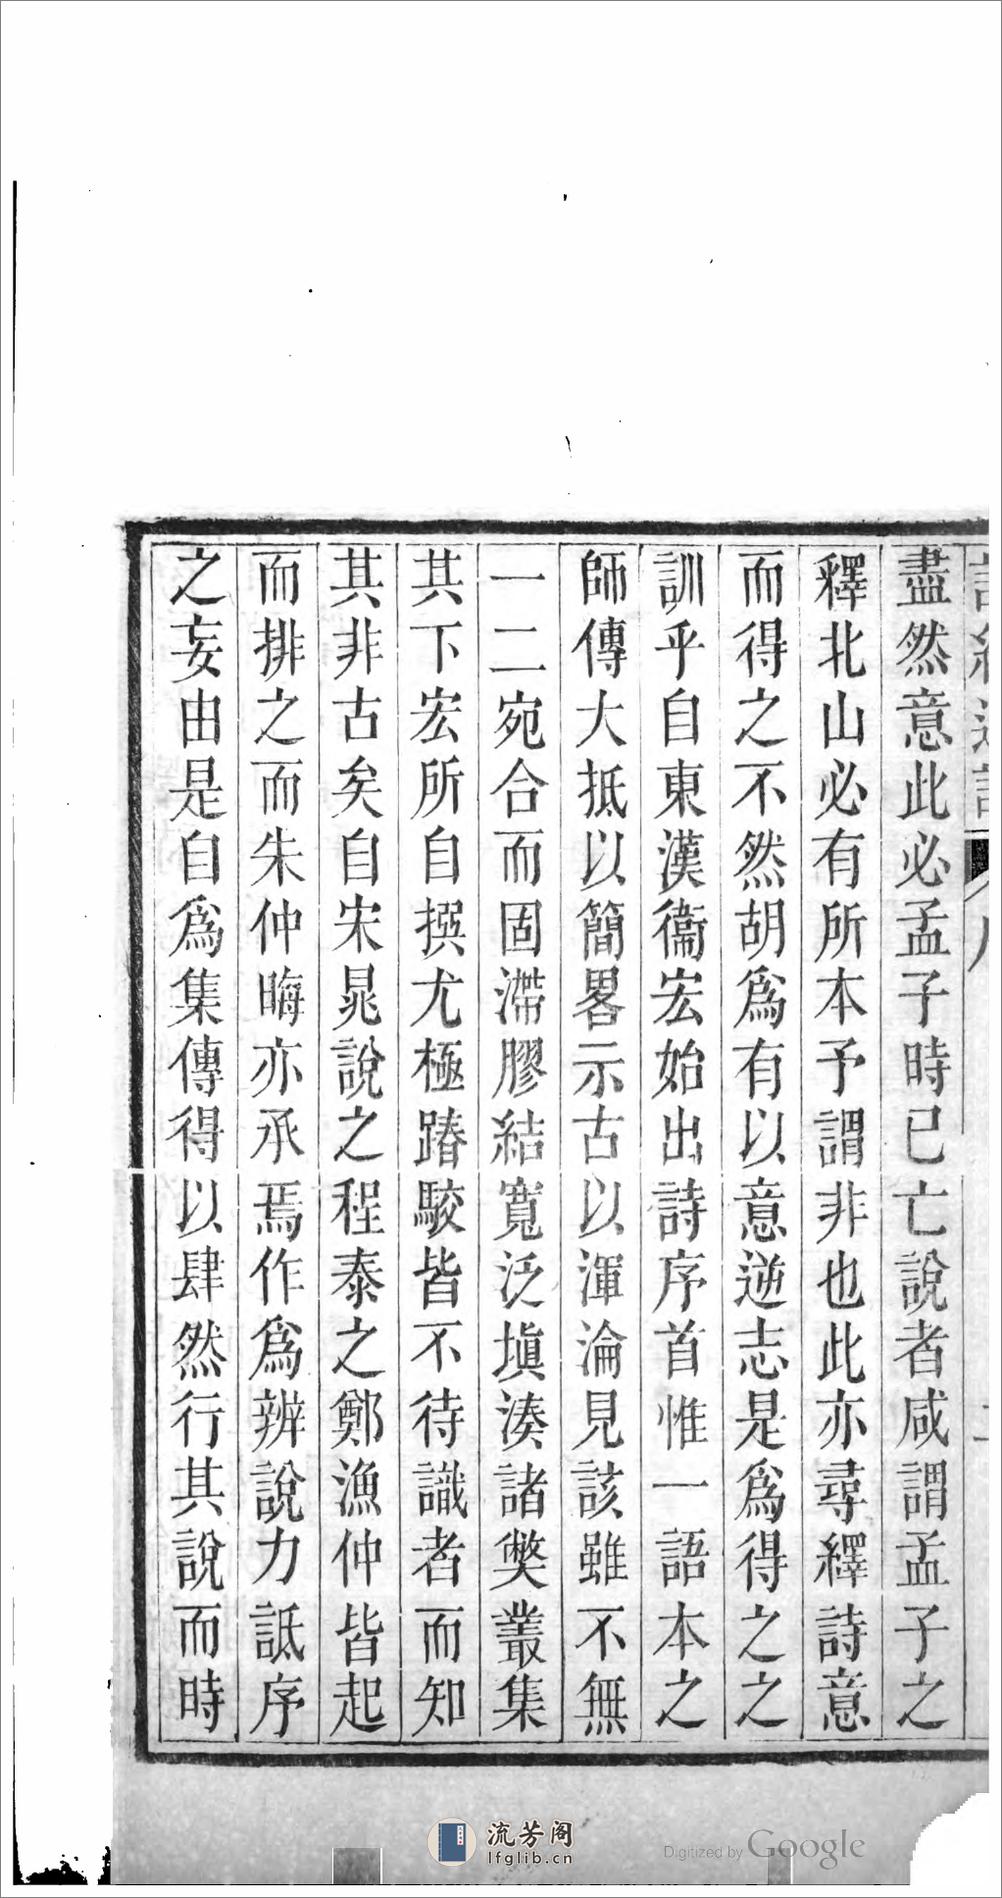 盡然意此必孟子時已亡說者咸謂孟子之
釋北山必有所本予謂非也此亦尋繹詩意
而得之不然胡爲有以意逆志是爲得之之
訓乎自東漢衞宏始出詩序首惟一語本之
師傳大抵以簡畧示古以渾淪見該雖不無
一二宛合而固滯膠結寬泛塡湊諸獘叢集
其下宏所自撰尤極踳駮皆不待識者而知
其非古矣自宋晁說之程泰之鄭漁仲皆起
而排之而朱仲晦亦承焉作爲辨說力詆序
之妄由是自爲集傳得以肆然行其說而時
流芳阁
lfglib.cn
Digitized by Google